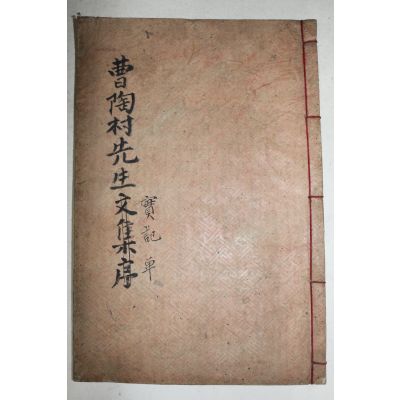 曹陶村先生文集序
寶記 單